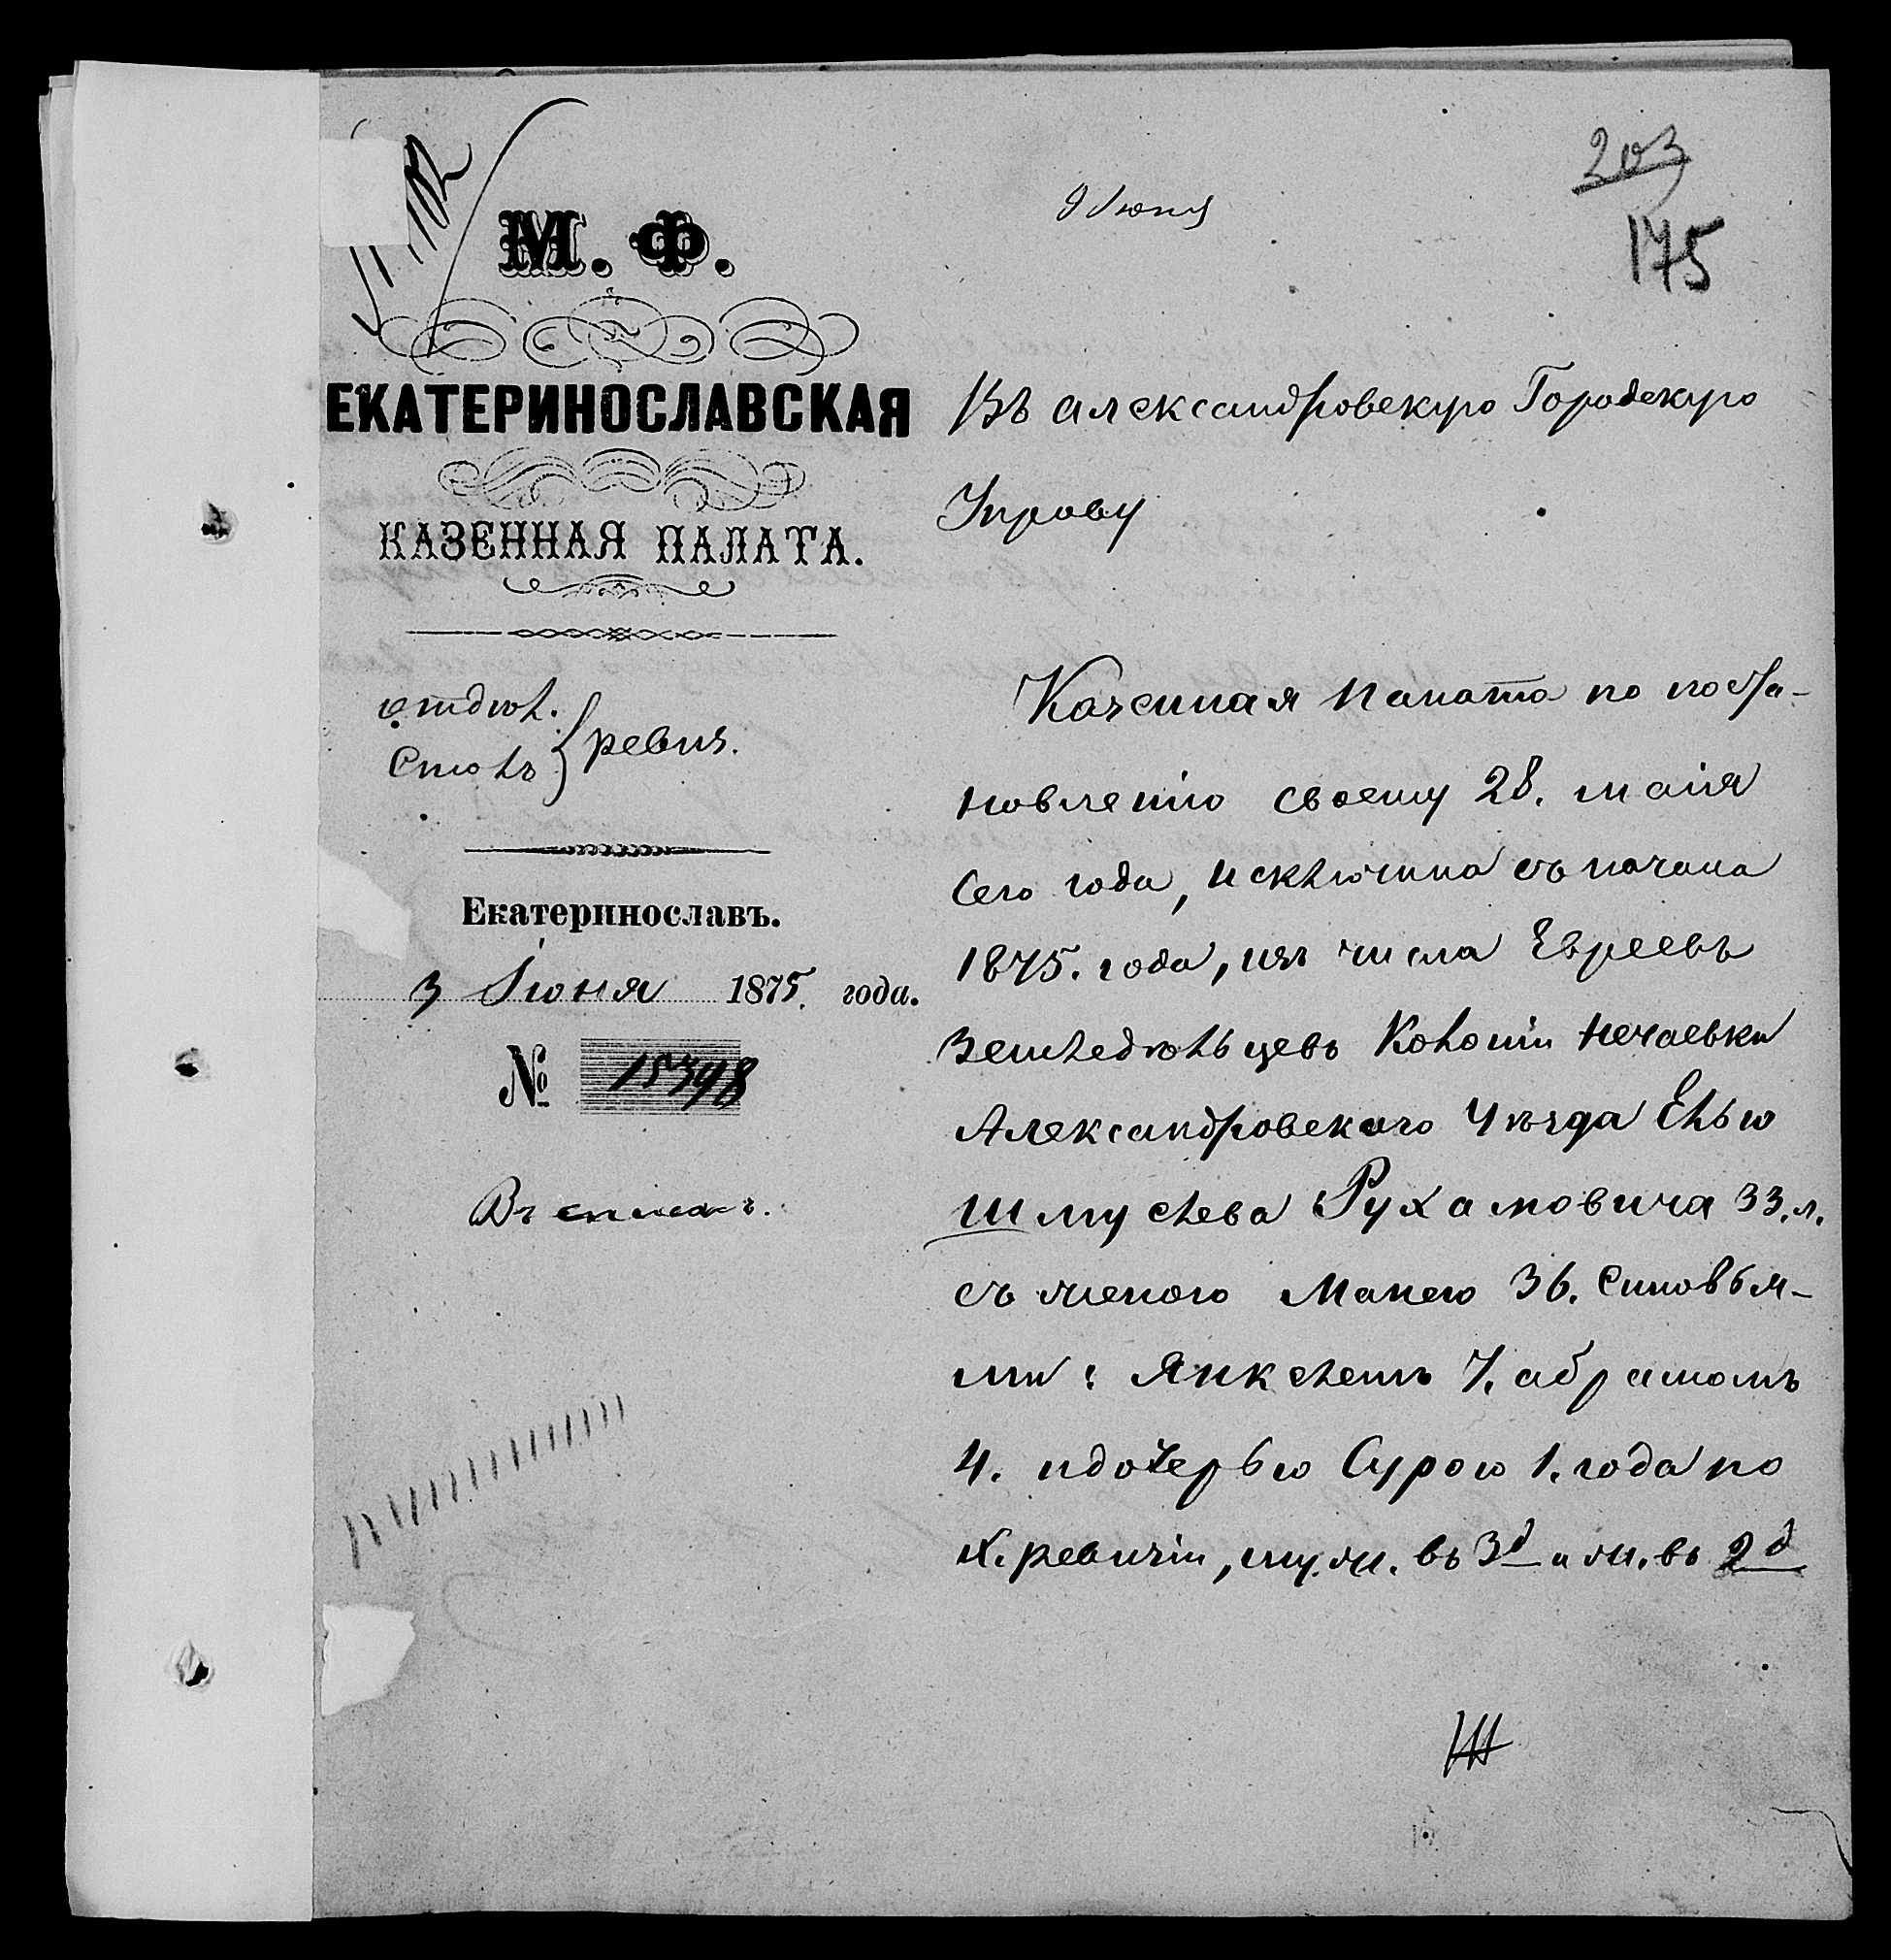 203
175
9 Июня
М. Ф.
ЕКАТЕРИНОСЛАВСКАЯ
КАЗЕННАЯ ПАЛАТА.
Отдѣл.
Столъ
ревиз.
Екатеринославъ.
3 Іюня 1875. года.
№ 15398
Въ Александровскую Городскую
Управу
Казенная Палата по поста-
новленію своему 28. маія
сего года, исключила съ начала
1875. года, изъ числа Евреевъ
Земледѣльцевъ Колоніи Нечаевки
Александровскаго Уѣзда Елью
Шмулева Рухамовича 33. л.
съ женою Манею 36. Сыновья-
ми: Янкелемъ 7. Абрамомъ
4. и дочерью Сурою 1. года по
X. ревизіи, му. ж. въ 3д и ж. въ 2д